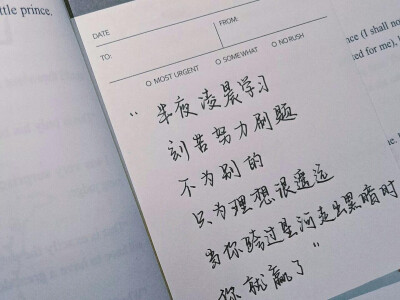 ttle prince.
DATE
FROM:
TO:
O MOST URGENT O SOMEWHAT O NO RUSH
nce (I shall no
ed for me), I
“半夜凌晨学习
刻苦努力刷题
不为别的
只为理想很遥远
当你跨过星河走出黑暗时
你就赢了”